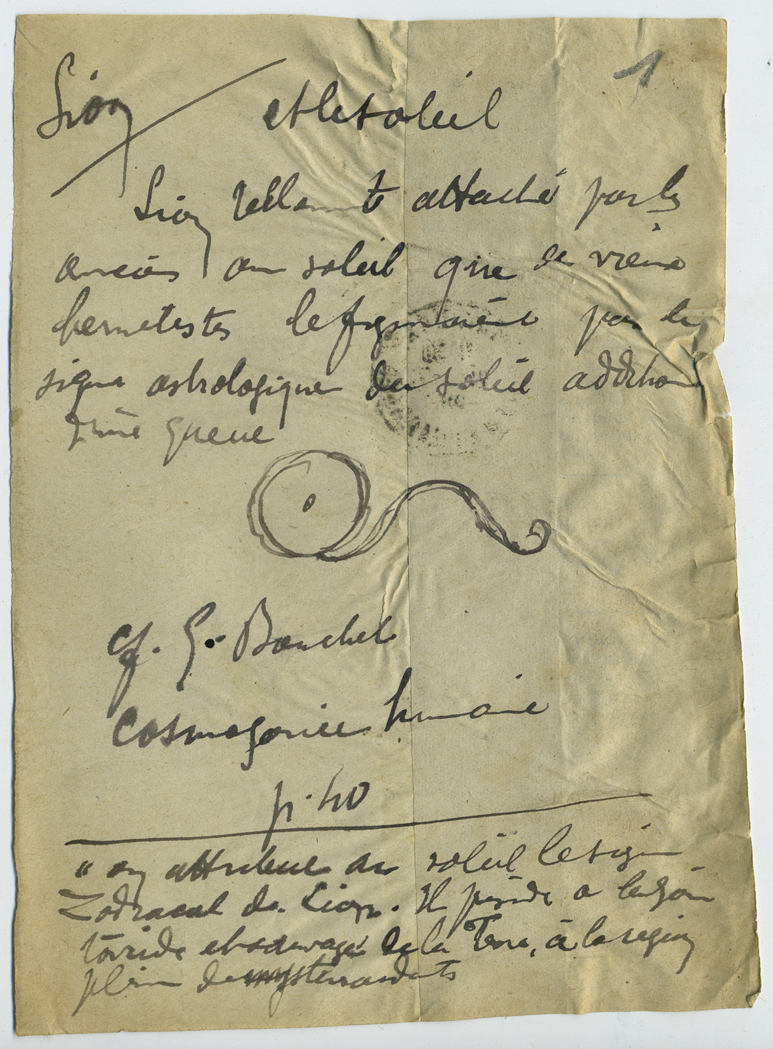 1
Lion et le soleil
Lion tellement attaché par les
anciens au soleil que de vieux
hermetistes le figuraient par le
signe astrologique du soleil addition
d'une queue
cf. G. Bouchet
Cosmogonie humaine
p. 40
" on attribue au soleil le signe
Zodiacal du Lion. Il préside a la région
torride et sauvage de la Terre, à la region
pleine de mystères ardents